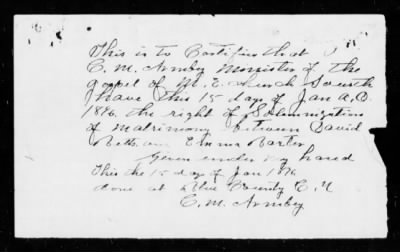 This is to Certifie that I
C. M. Armby minister of the
gospel of M. E. church South
have this 15 day of Jan A.D.
1896. the right of Solemnization
of matrimony between David
and Emma Carter
Given under my hand
This the 15 day of Jan 1896
done at Blue County C. N
C. M. Armby